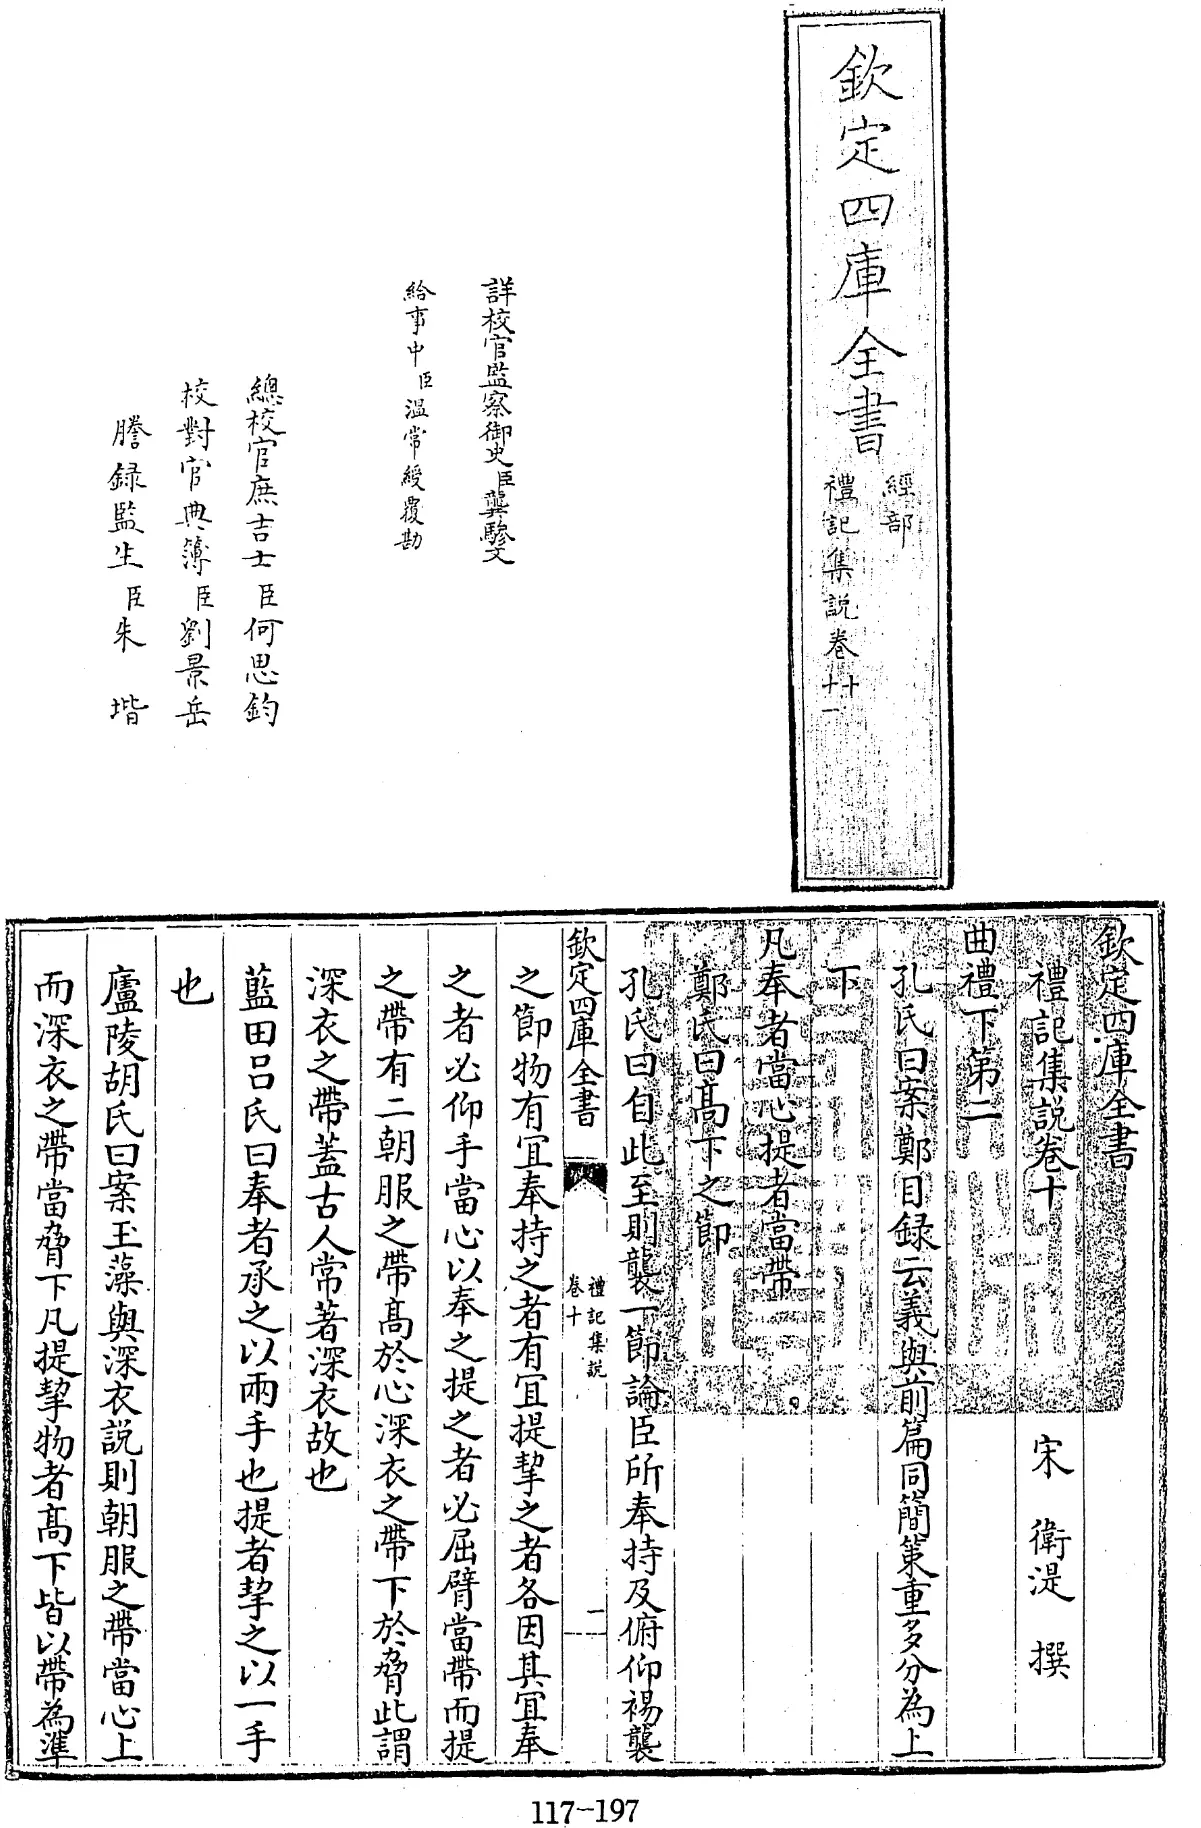 欽定四庫全書
經部
禮記集説卷十
十一
詳校官監察御史臣龔驂文
給事中臣温常綬覆勘
總校官庶吉士臣何思鈞
校對官典簿臣劉景岳
謄録監生臣朱堦
欽定四庫全書
禮記集説卷十
宋 衛湜 撰
曲禮下第二
孔氏曰案鄭目録云義與前篇同簡策重多分為上
下
凡奉者當心提者當帶
鄭氏曰髙下之節
孔氏曰自此至則襲一節論臣所奉持及俯仰裼襲
欽定四庫全書
禮記集説
卷十
一
之節物有宜奉持之者有宜提挈之者各因其宜奉
之者必仰手當心以奉之提之者必屈臂當帶而提
之帶有二朝服之帶髙於心深衣之帶下於脅此謂
深衣之帶蓋古人常著深衣故也
藍田吕氏曰奉者承之以兩手也提者挈之以一手
也
廬陵胡氏曰案玉藻與深衣説則朝服之帶當心上
而深衣之帶當脅下凡提挈物者髙下皆以帶為準
117-197